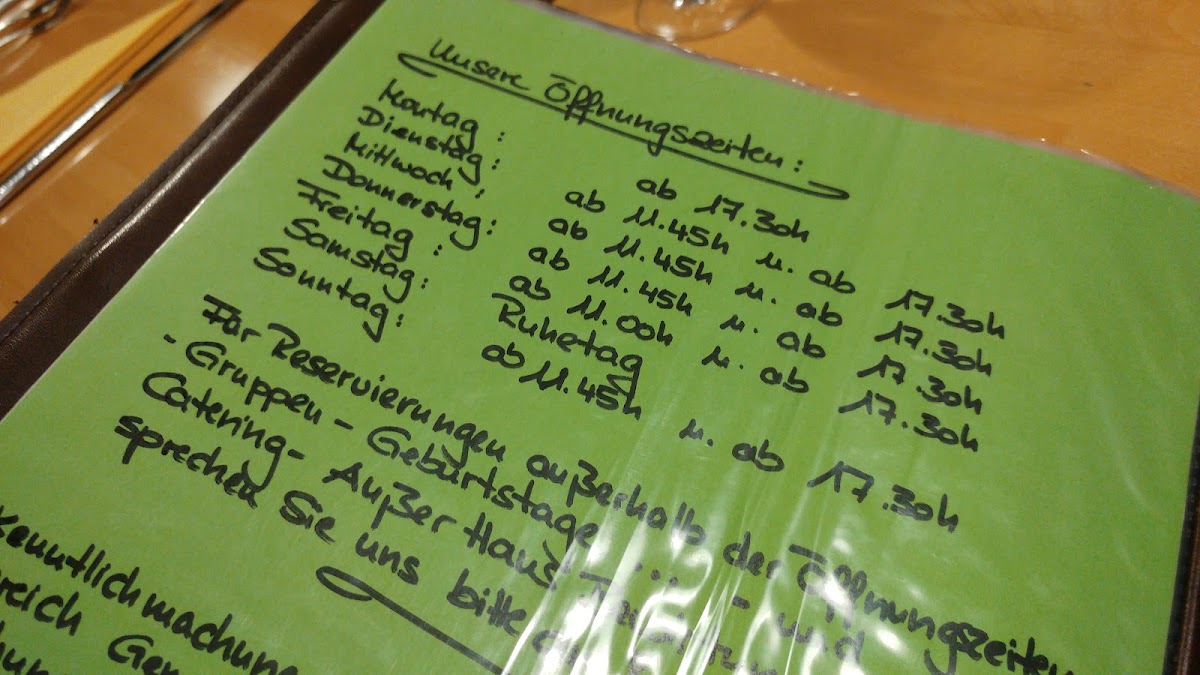 Unsere Öffnungszeiten:
Montag : ab 17.30h
Dienstag : ab 11.45h u. ab 17.30h
Mittwoch : ab 11.45h u. ab 17.30h
Donnerstag : ab 11.45h u. ab 17.30h
Freitag : ab 11.00h u. ab 17.30h
Samstag : Ruhetag
Sonntag : ab 11.45h u. ab 17.30h
Für Reservierungen außerhalb der Öffnungszeiten
- Gruppen - Geburtstage .... - und
Catering - Außer Haus
sprechen Sie uns bitte
Kenntlichmachung
reich